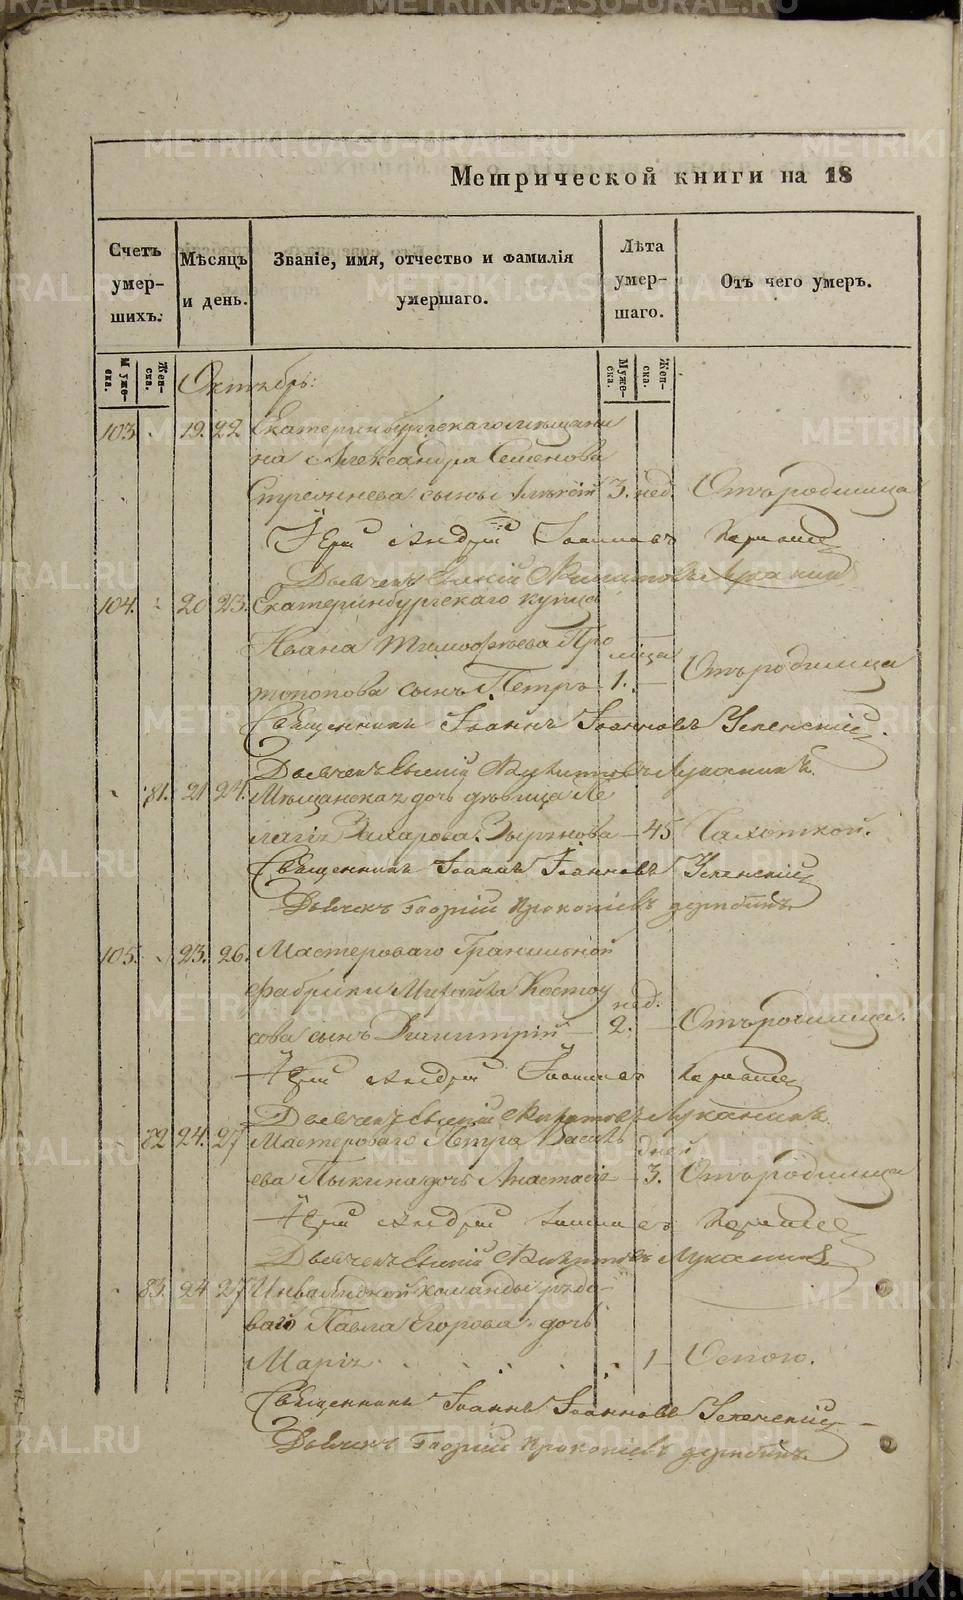 Метрической книги на 18
Счетъ умер- шихъ.
Мѣсяцъ и день.
Званіе, имя, отчество и фамилія умершаго.
Лѣта умер- шаго.
Отъ чего умеръ.
Муже- ска. Жен- ска.
Муже- ска. Жен- ска.
Октябрь:
103. 19. 22 Екатеринбургскаго мѣщани
на Александра Семенова
сынъ Алексій 3. нед. Отъ родимца
Іерей Андрей Іоанновъ
Дьячекъ Евгеній Никитовъ Луканин
104. 20 23. Екатеринбургскаго купца
Ивана Тимофѣева Про
мѣсяца
топопова сынъ Петръ 1. — Отъ родимца
Священникъ Іоаннъ Іоанновъ Успенскій
Дьячекъ Евгеній Никитовъ Луканинъ.
81. 21 24. Мѣщанская дочь дѣвица Пе
лагія Захарова Зырянова — 45 Чахоткой.
Священникъ Іоаннъ Іоанновъ Успенскій
Дьячекъ Георгій Прокопіевъ
105. 23. 26. Мастероваго Гранильной
фабрики Михайла Костоу
нед.
сова сынъ Димитрій — 2. — Отъ родимца.
Іерей Андрей Іоанновъ
Дьячекъ Евгеній Никитовъ Луканинъ.
82 24. 27 Мастероваго Петра Василь
дней
ева Пыкина дочь Анастасія — 3. Отъ родимца
Іерей Андрей Іоанновъ
Дьячекъ Евгеній Никитовъ Луканинъ
83. 24 27 Инвалидной команды рядо-
ваго Павла Егорова дочь
Марія . . . . . . 1 — Оспою.
Священникъ Іоаннъ Іоанновъ Успенскій
Дьячекъ Георгій Прокопіевъ
METRIKI.GASO-URAL.RU